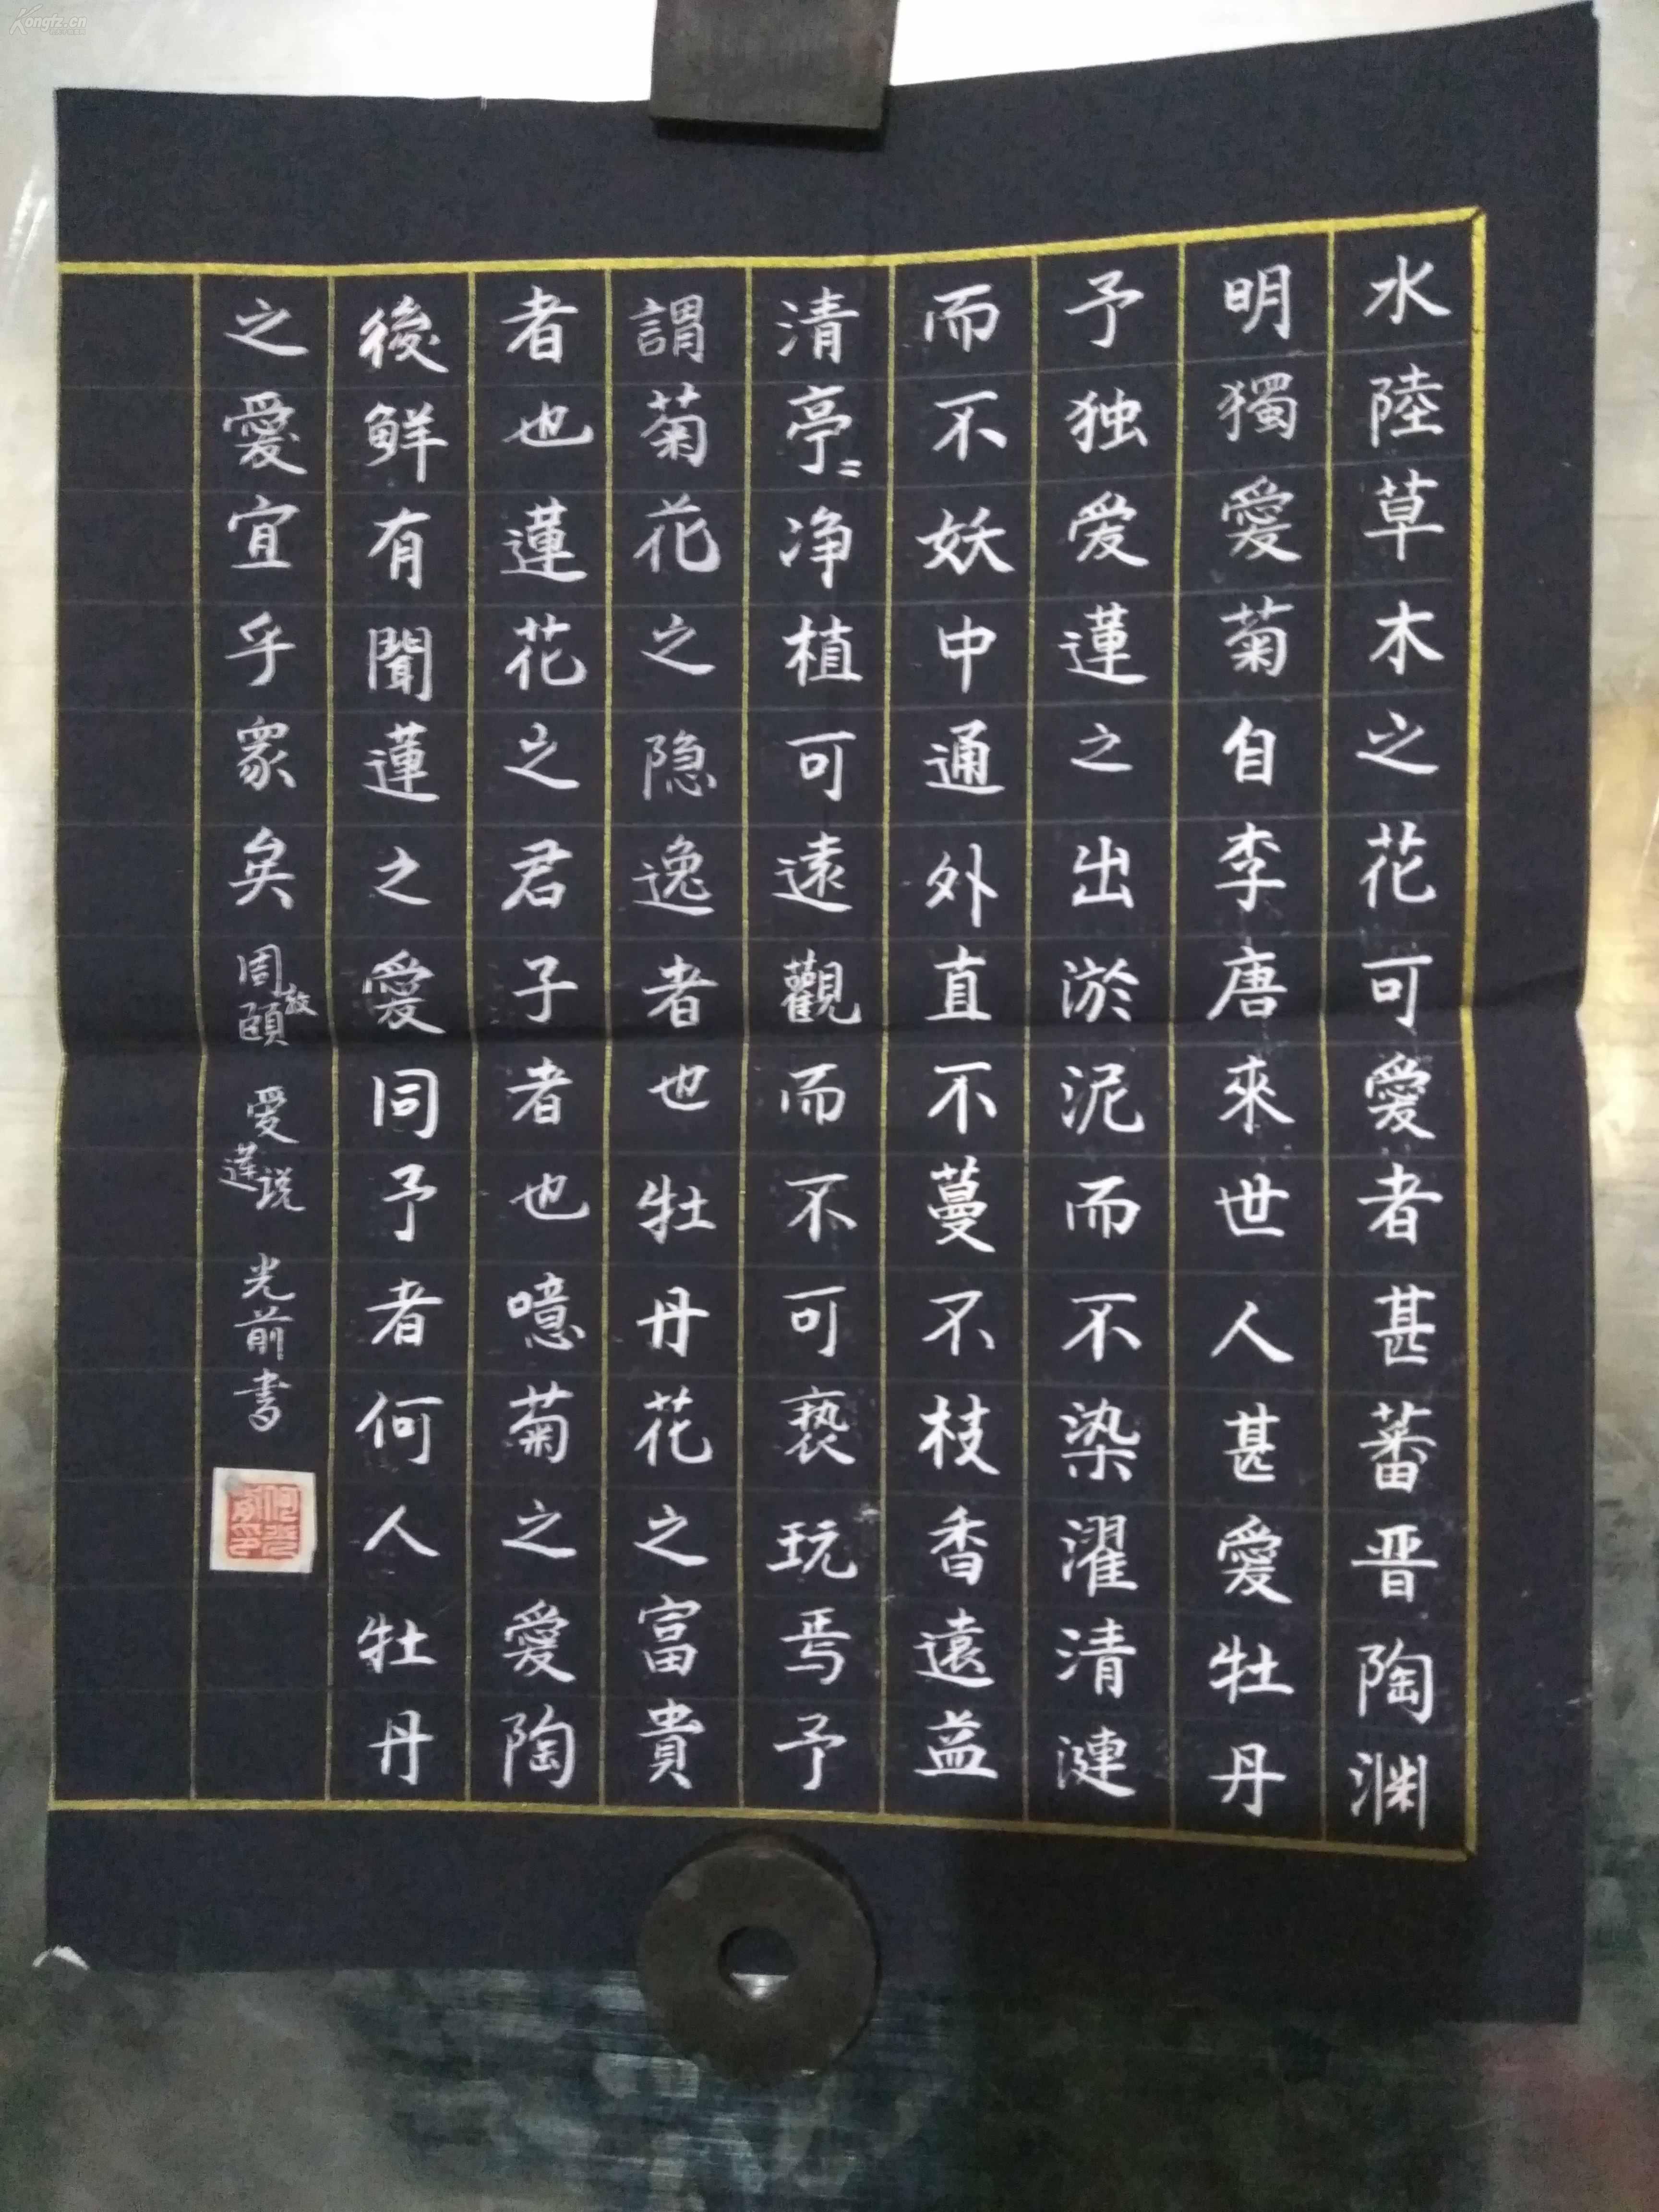 水陸草木之花可愛者甚蕃晋陶渊
明獨愛菊自李唐來世人甚愛牡丹
予独爱蓮之出淤泥而不染濯清漣
而不妖中通外直不蔓不枝香遠益
清亭〻净植可遠觀而不可亵玩焉予
謂菊花之隐逸者也牡丹花之富貴
者也蓮花之君子者也噫菊之愛陶
後鮮有聞蓮之愛同予者何人牡丹
之愛宜乎衆矣 周敦頤 愛蓮说 光前書
Kongfz.cn